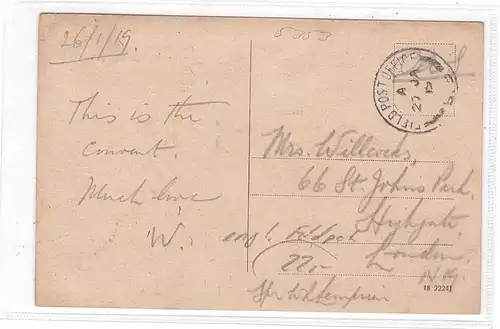 26/1/19.
This is the
convent.
Much love
W.
5353
FIELD POST OFFICE
A
27 JA
19
Mrs. Willcocks,
66 St. Johns Park,
Highgate,
London.
N.19.
engl. Feldpost
22,-
18 22241